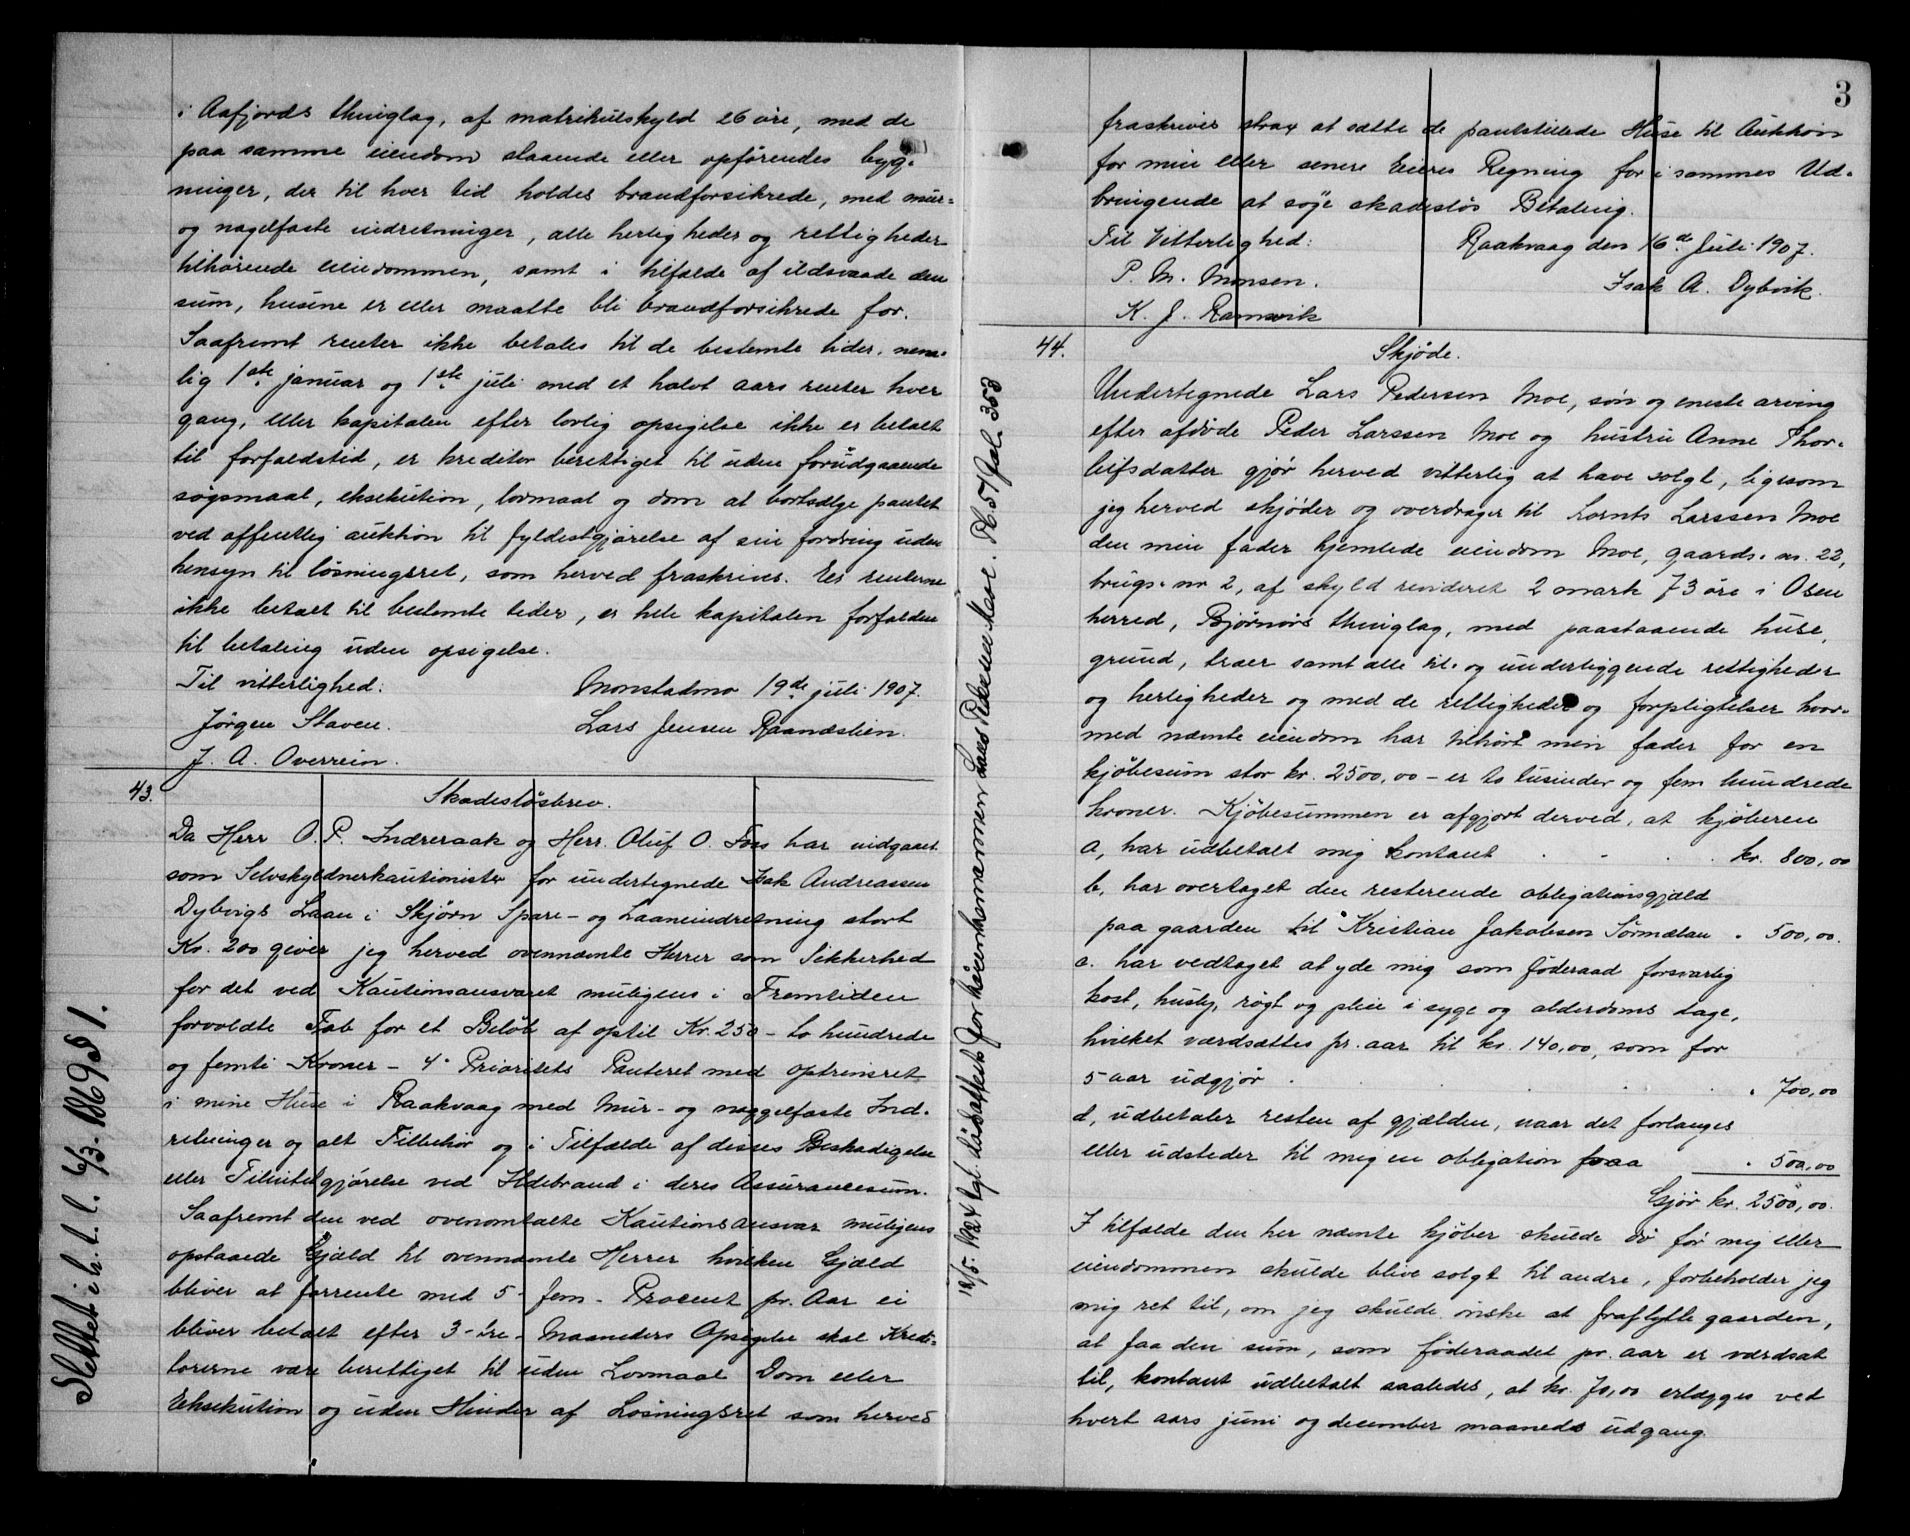 i Aafjords thinglag, af matrikulskyld 26 øre, med de
paa samme eiendom staaende eller opførendes byg-
ninger, der til hver tid holdes brandforsikrede, med mur-
og nagelfaste indretninger, alle herligheder og rettigheder
tilhørende eiendommen, samt i tilfælde af ildsvaade den
sum, husene er eller maatte bli brandforsikrede for.
Saafremt renter ikke betales til de bestemte tider, nem-
lig 1ste januar og 1ste juli med et halvt aars renter hver
gang, eller kapitalen efter lovlig opsigelse ikke er betalt
til forfaldstid, er kreditor berettiget til uden forudgaaende
søgsmaal, eksekution, lovmaal og dom at bortsælge pantet
ved offentlig auktion til fyldestgjørelse af sin fordring uden
hensyn til løsningsret, som herved fraskrives. Er renterne
ikke betalt til bestemte tider, er hele kapitalen forfalden
til betaling uden opsigelse.
Til vitterlighed: Monstadmo 19de juli 1907.
Jørgen Staven. Lars Jensen Raanæslien.
J. A. Overrein.
43. Skadesløsbrev.
Da Herr O. P. Indreraak og Herr Oluf O. Foss har indgaaet
som Selvskyldnerkautionister for undertegnede Isak Andreassen
Dybvigs Laan i Skjørn Spare- og Laaneindretning stort
Kr. 200 giver jeg herved ovennævnte Herrer som Sikkerhed
for det ved Kautionsansvaret muligens i Fremtiden
forvoldte Tab for et Beløb af optil Kr. 250 - to hundrede
og femti Kroner - 4. Prioritets Panteret med optrinsret
i mine Huse i Raakvaag med Mur- og naggelfaste Ind-
retninger og alt Tilbehør og i Tilfælde af desses Beskadigelse
eller Tilintetgjørelse ved Ildebrand i deres Assurancesum.
Saafremt den ved ovenomtalte Kautionsansvar muligens
opstaaede Gjæld til ovennævnte Herrer hvilken Gjæld
bliver at forrente med 5 - fem - Procent pr. Aar ei
bliver betalt efter 3 - tre - Maaneders Opsigelse skal Kredi-
torerne være berettiget til uden Lovmaal Dom eller
Eksekution og uden Hinder af Løsningsret som herved
Slettet i h. t. l. 6/3. 1869 § 1.
3
fraskrives strax at sætte de pantstillede Huse til Auktion
for min eller senere Eieres Regning for i sammes Ud-
bringende at søge skadesløs Betaling.
Til Vitterlighed: Raakvaag den 16de Juli 1907.
P. M. Monsen. Isak A. Dybvik.
K. J. Ramsvik
44. Skjøde.
Undertegnede Lars Pedersen Moe, søn og eneste arving
efter afdøde Peder Larssen Moe og hustru Anne Thor-
leifsdatter gjør herved vitterlig at have solgt, ligesom
jeg herved skjøder og overdrager til Lornts Larssen Moe
den min fader hjemlede eiendom Moe, gaards. nr. 22,
brugs. nr 2, af skyld revideret 2 mark 73 øre i Osen
herred, Bjørnørs thinglag, med paastaaende huse,
grund, træer samt alle til- og underliggende rettigheder
og herligheder og med de rettigheder og forpligtelser hvor-
med nævnte eiendom har tilhørt min fader for en
kjøbesum stor kr. 2500,00 - er to tusinder og fem hundrede
kroner. Kjøbesummen er afgjort derved, at kjøberen
a, har udbetalt mig kontant . . . . kr. 800,00
b, har overtaget den resterende obligationsgjæld
paa gaarden til Kristian Jakobsen Sørmælan . 500,00.
c. har vedtaget at yde mig som føderaad forsvarlig
kost, husly, røgt og pleie i syge og alderdoms dage,
hvilket værdsættes pr. aar til kr. 140,00, som for
5 aar udgjør . . . . . 700,00
d, udbetaler resten af gjælden, naar det forlanges
eller udsteder til mig en obligation paa . 500,00
Gjør kr. 2500,00.
I tilfælde den her nævnte kjøber skulde dø før mig eller
eiendommen skulde blive solgt til andre, forbeholder jeg
mig ret til, om jeg skulde ønske at fraflytte gaarden,
at faa den sum, som føderaadet pr. aar er værdsat
til, kontant udbetalt saaledes, at kr. 70,00 erlægges ved
hvert aars juni og december maaneds udgang.
12/5. 1924 tgl. dødsattest for hjemmelsmannen Lars Pedersen Moe. Pb. 57 fol. 353